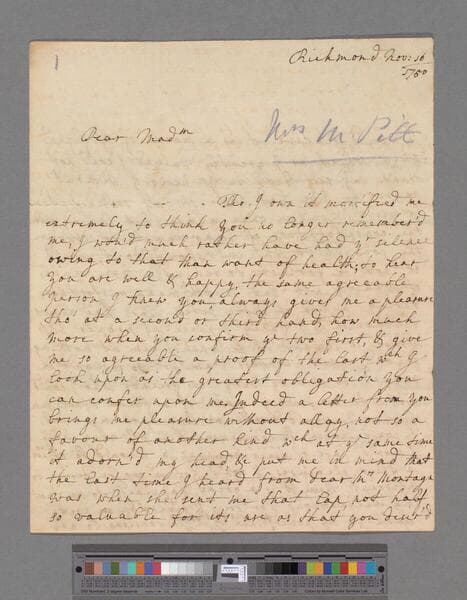 1
Richmond Nov: 16
1750
Dear Madm
Mrs M Pitt
Tho, I own it mortified me
extremely to think you no longer remember'd
me, I wou'd much rather have had yr silence
owing to that than want of health; to hear
you are well & happy, the same agreeable
person I knew you always gives me a pleasure
tho' at a second or third hand, how much
more when you confirm ye two first, & give
me so agreeable a proof of the last wch I
look upon as the greatest obligation you
can confer upon me. Indeed a letter from you
brings me pleasure without allay, not so a
favour of another kind wch at ye same time
it adorn'd my head, & put me in mind that
the last time I heard from dear Mrs Montagu
was when she sent me that Cap not half
so valuable for its use as that you desir'd